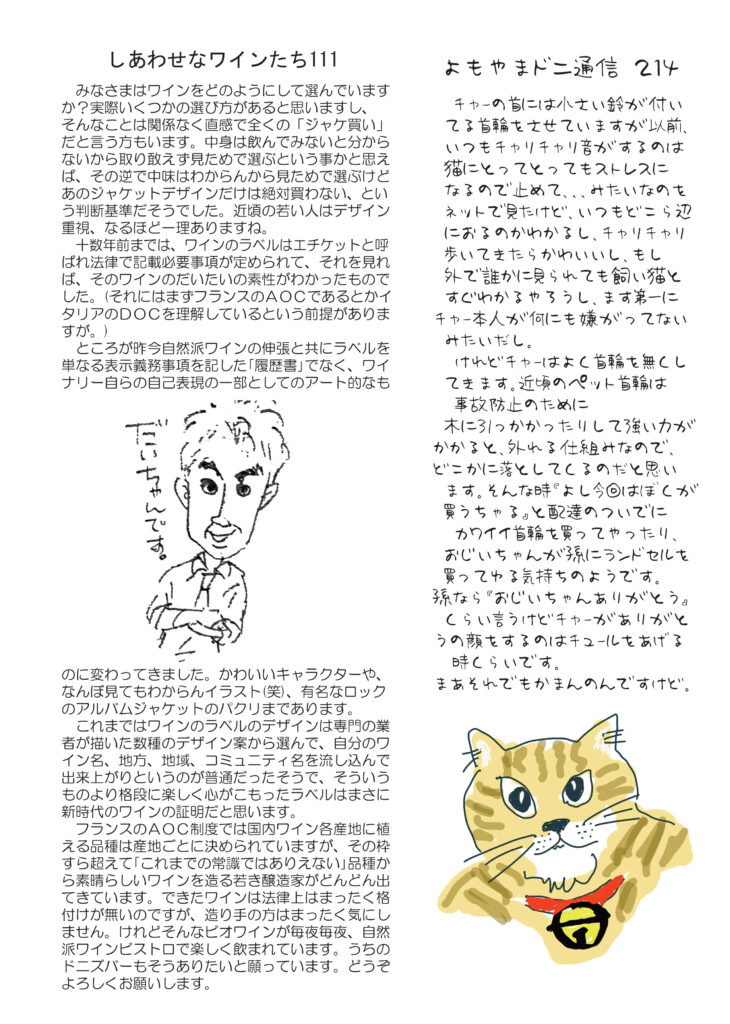 しあわせなワインたち111
　みなさまはワインをどのようにして選んでいます
か？実際いくつかの選び方があると思いますし、
そんなことは関係なく直感で全くの「ジャケ買い」
だと言う方もいます。中身は飲んでみないと分から
ないから取り敢えず見ためで選ぶという事かと思え
ば、その逆で中味はわからんから見ためで選ぶけど
あのジャケットデザインだけは絶対買わない、とい
う判断基準だそうでした。近頃の若い人はデザイン
重視、なるほど一理ありますね。
　十数年前までは、ワインのラベルはエチケットと呼
ばれ法律で記載必要事項が定められて、それを見れ
ば、そのワインのだいたいの素性がわかったもので
した。(それにはまずフランスのＡＯＣであるとかイ
タリアのＤＯＣを理解しているという前提がありま
すが。)
　ところが昨今自然派ワインの伸張と共にラベルを
単なる表示義務事項を記した「履歴書」でなく、ワイ
ナリー自らの自己表現の一部としてのアート的なも
だいちゃんです。
のに変わってきました。かわいいキャラクターや、
なんぼ見てもわからんイラスト(笑)、有名なロック
のアルバムジャケットのパクリまであります。
　これまではワインのラベルのデザインは専門の業
者が描いた数種のデザイン案から選んで、自分のワ
イン名、地方、地域、コミュニティ名を流し込んで
出来上がりというのが普通だったそうで、そういう
ものより格段に楽しく心がこもったラベルはまさに
新時代のワインの証明だと思います。
　フランスのＡＯＣ制度では国内ワイン各産地に植
える品種は産地ごとに決められていますが、その枠
すら超えて「これまでの常識ではありえない」品種か
ら素晴らしいワインを造る若き醸造家がどんどん出
てきています。できたワインは法律上はまったく格
付けが無いのですが、造り手の方はまったく気にし
ません。けれどそんなビオワインが毎夜毎夜、自然
派ワインビストロで楽しく飲まれています。うちの
ドニズバーもそうありたいと願っています。どうぞ
よろしくお願いします。
よもやまドニ通信 214
チャーの首には小さい鈴が付い
てる首輪をさせていますが以前、
いつもチャリチャリ音がするのは
猫にとってとってもストレスに
なるので止めて、、、みたいなのを
ネットで見たけど、いつもどこら辺
におるのかわかるし、チャリチャリ
歩いてきたらかわいいし、もし
外で誰かに見られても飼い猫と
すぐわかるやろうし、まず第一に
チャー本人が何にも嫌がってない
みたいだし。
けれどチャーはよく首輪を無くし
てきます。近頃のペット首輪は
事故防止のために
木に引っかかったりして強い力が
かかると、外れる仕組みなので、
どこかに落としてくるのだと思い
ます。そんな時『よし今回はぼくが
買うちゃる』と配達のついでに
カワイイ首輪を買ってやったり、
おじいちゃんが孫にランドセルを
買ってやる気持ちのようです。
孫なら『おじいちゃんありがとう』
くらい言うけどチャーがありがと
うの顔をするのはチュールをあげる
時くらいです。
まあそれでもかまんのんですけど。